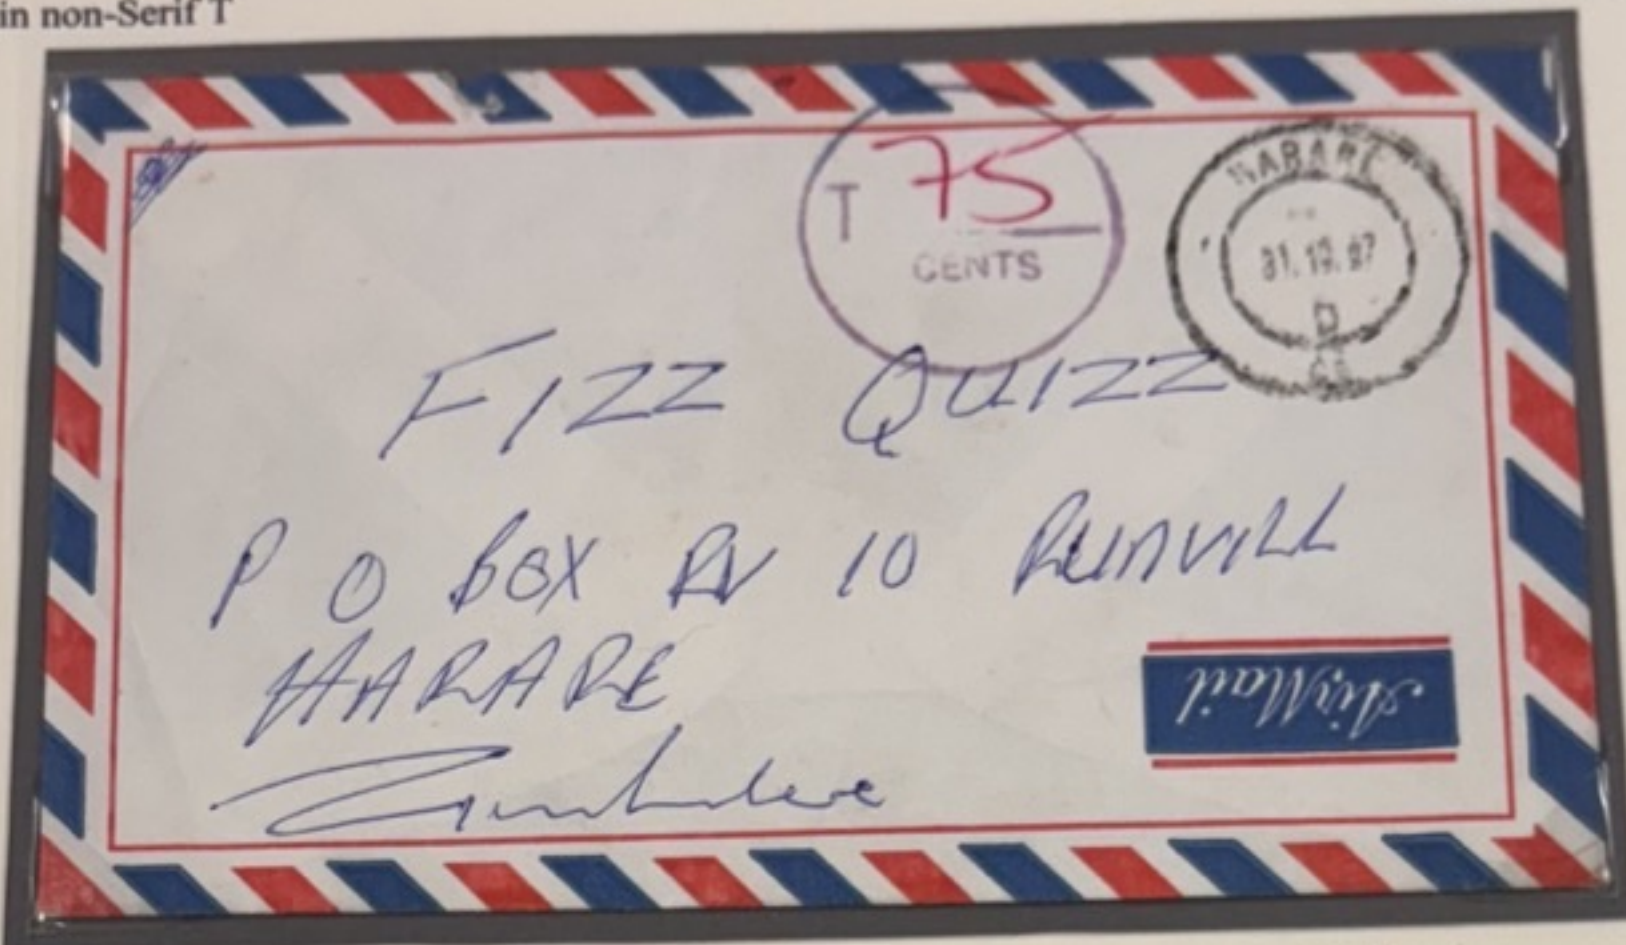 in non-Serif T
T 75
CENTS
HARARE
31.12.97
D
FIZZ QUIZZ
P O BOX RV 10 RUNVILL
HARARE
Zimbabwe
Air Mail